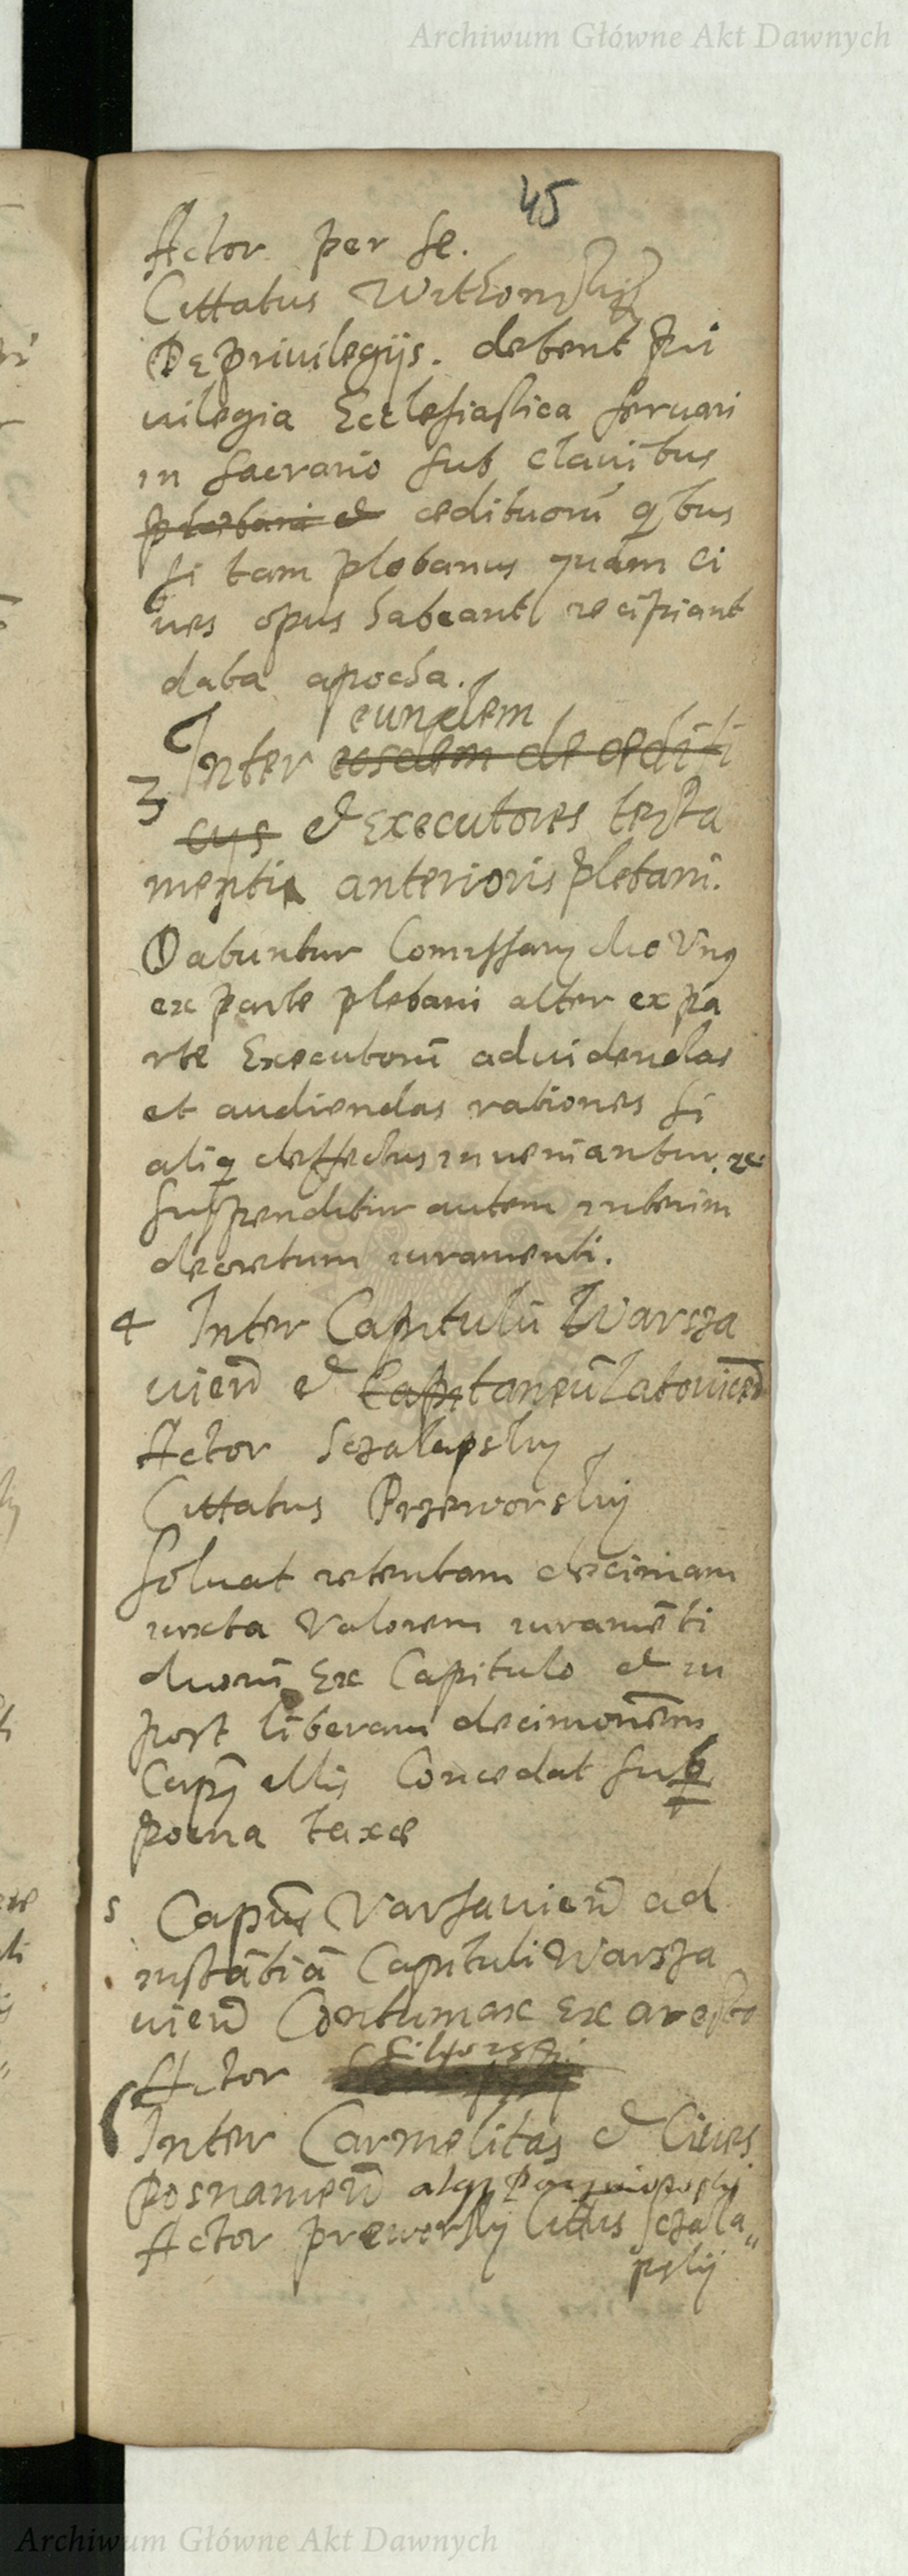 Archiwum Główne Akt Dawnych
45
Actor per se.
Cittatus Withonsky
De privilegijs. debent pri
uilegia Ecclesiastica seruari
in sacrario sub clauibus
plebani et ædituorū qbus
si tam plebanus quam ci
ues opus habeant recipiant
data apocha.
eundem
3 Inter eosdem de ædifi
cijs et Executores testa
menti anterioris plebani.
Dabuntur Comissarij duo Vnq
ex parte plebani alter ex pa
rte Executorū ad uidendas
et audiendas rationes si
aliq deffectus inueniantur. etc
suspenditur autem interim
decretum iuramenti.
4 Inter Capitulū Warsza
uien et Capitaneū Latouicen
Actor Sczalapsky
Cittatus Przeworskij
soluat retentam decimam
iuxta Valorem iuramēti
duorū Ex Capitulo et in
post liberam decimonem
illis Concedat sub
poena taxæ
5 Capūs Varsauien ad
instātiā Capituli Warsza
uien Contumax Ex aresto
Actor
Inter Carmelitas et Ciues
Posnanien
Actor prewersky Cittus Sczala
pskij
Archiwum Główne Akt Dawnych